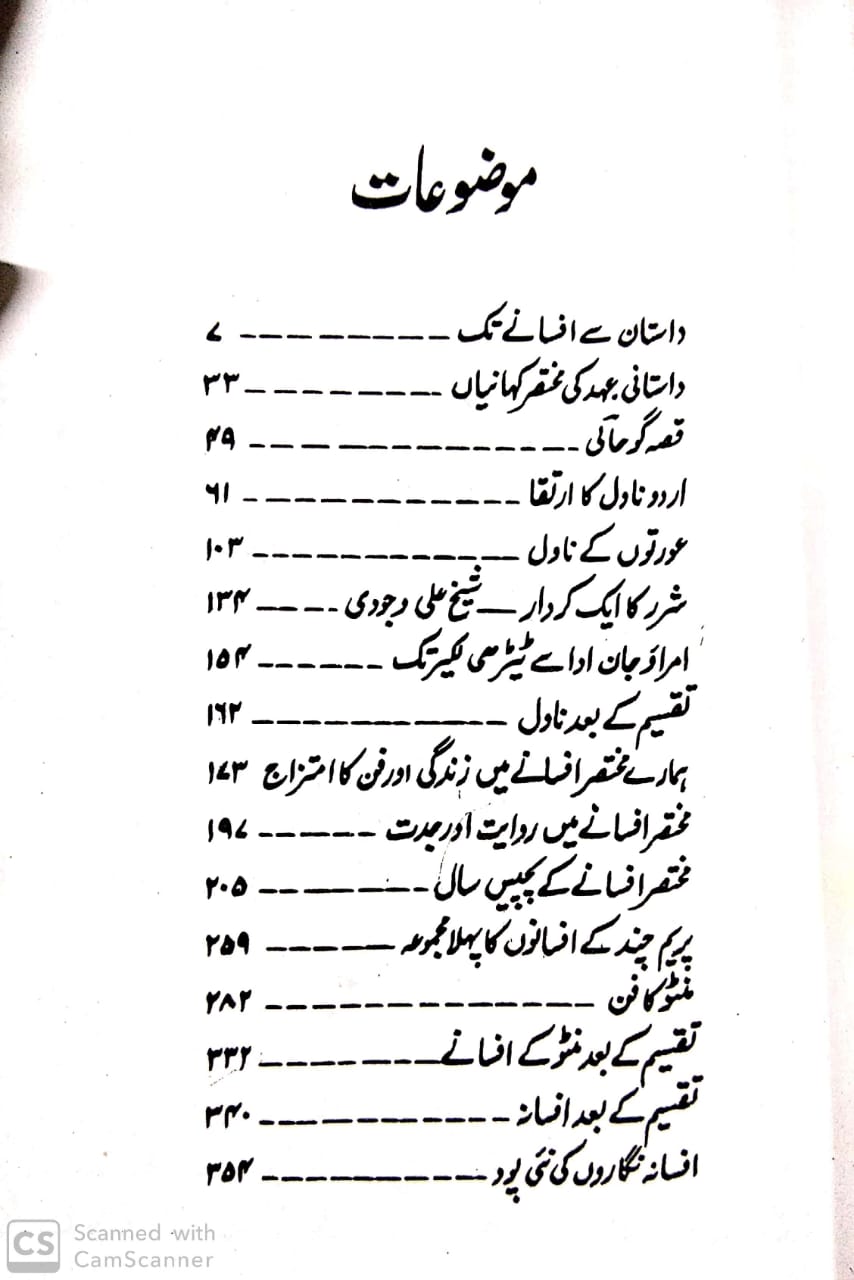 موضوعات
داستان سے افسانے تک ۷
داستانی عہد کی مختصر کہانیاں ۳۳
قصہ گو حالی ۴۹
اردو ناول کا ارتقا ۶۱
عورتوں کے ناول ۱۰۳
شرر کا ایک کردار — شیخ علی وجودی ۱۳۴
امراؤ جان ادا سے ٹیڑھی لکیر تک ۱۵۴
تقسیم کے بعد ناول ۱۶۲
ہمارے مختصر افسانے میں زندگی اور فن کا امتزاج ۱۷۳
مختصر افسانے میں روایت اور جدت ۱۹۷
مختصر افسانے کے پچیس سال ۲۰۵
پریم چند کے افسانوں کا پہلا مجموعہ ۲۵۹
منٹو کا فن ۲۸۲
تقسیم کے بعد منٹو کے افسانے ۳۳۲
تقسیم کے بعد افسانہ ۳۴۰
افسانہ نگاروں کی نئی پود ۳۵۴
CS Scanned with
CamScanner